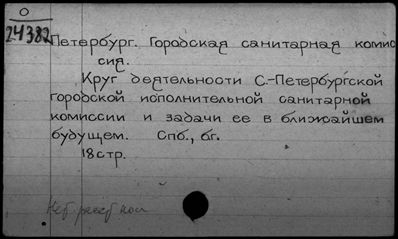 О
24382
Петербург. Городская санитарная комис
сия.
Круг деятельности С.-Петербургской
городской исполнительной санитарной
комиссии и задачи ее в ближайшем
будущем. Спб., бг.
18 стр.